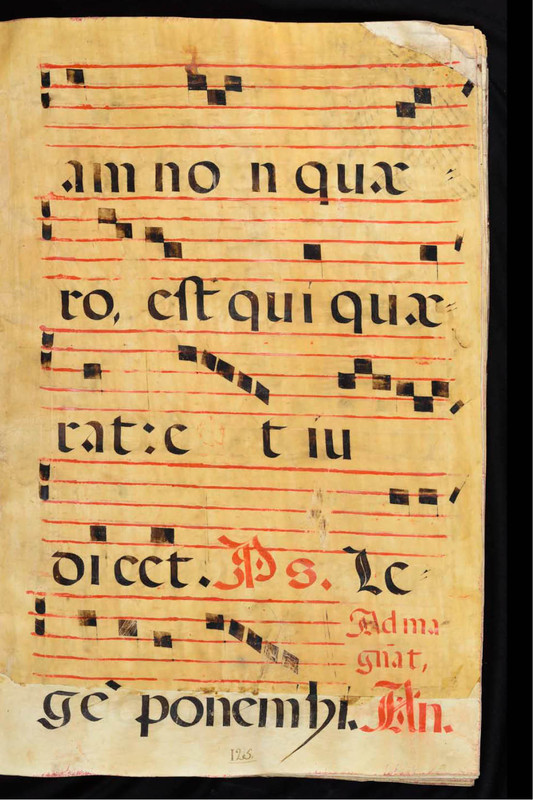 am no n quæ
ro, est qui quæ
rat: e t iu
dicet. Ps. Le
Ad ma
gnat,
ge ponem hi. An.
125